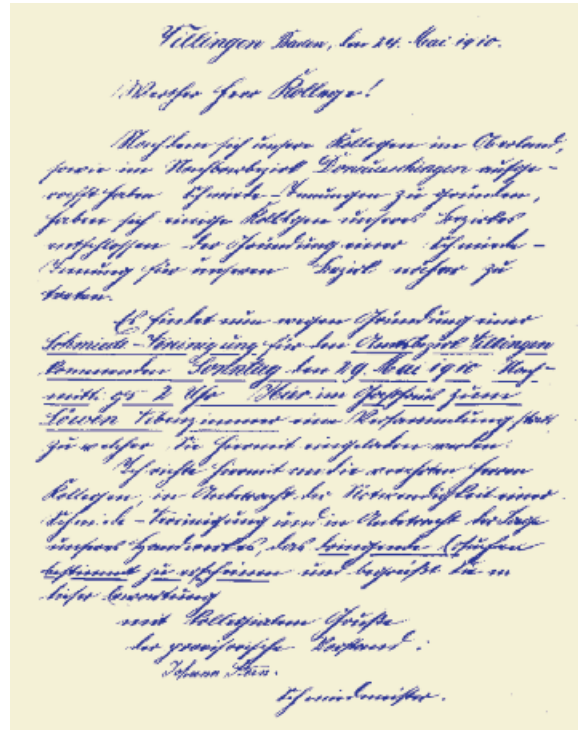 Villingen Baden, den 24. Mai 1910.
Werther Herr Kollege!
Nachdem sich unsere Kollegen im Oberland,
sowie im Nachbarbezirk Donaueschingen aufge-
rafft haben Schmiede-Innungen zu gründen,
haben sich einige Kollegen unseres Bezirkes
entschlossen der Gründung einer Schmiede-
Innung für unseren Bezirk näher zu
treten.
Es findet nun wegen Gründung einer
Schmiede-Vereinigung für den Amtsbezirk Villingen
kommenden Sonntag den 29. Mai 1910 Nach-
mittags 2 Uhr Hier im Gasthaus zum
Löwen Nebenzimmer eine Versammlung statt
zu welcher Sie hiermit eingeladen werden.
Ich richte hiermit an die verehrten Herren
Kollegen in Anbetracht der Notwendigkeit einer
Schmiede-Vereinigung und in Anbetracht der Lage
unseres Handwerkes, das dringende Ersuchen
bestimmt zu erscheinen und begrüßt Sie in
dieser Erwartung
mit Kollegialem Gruße
der provisorische Vorstand:
Johann
Schmiedmeister.